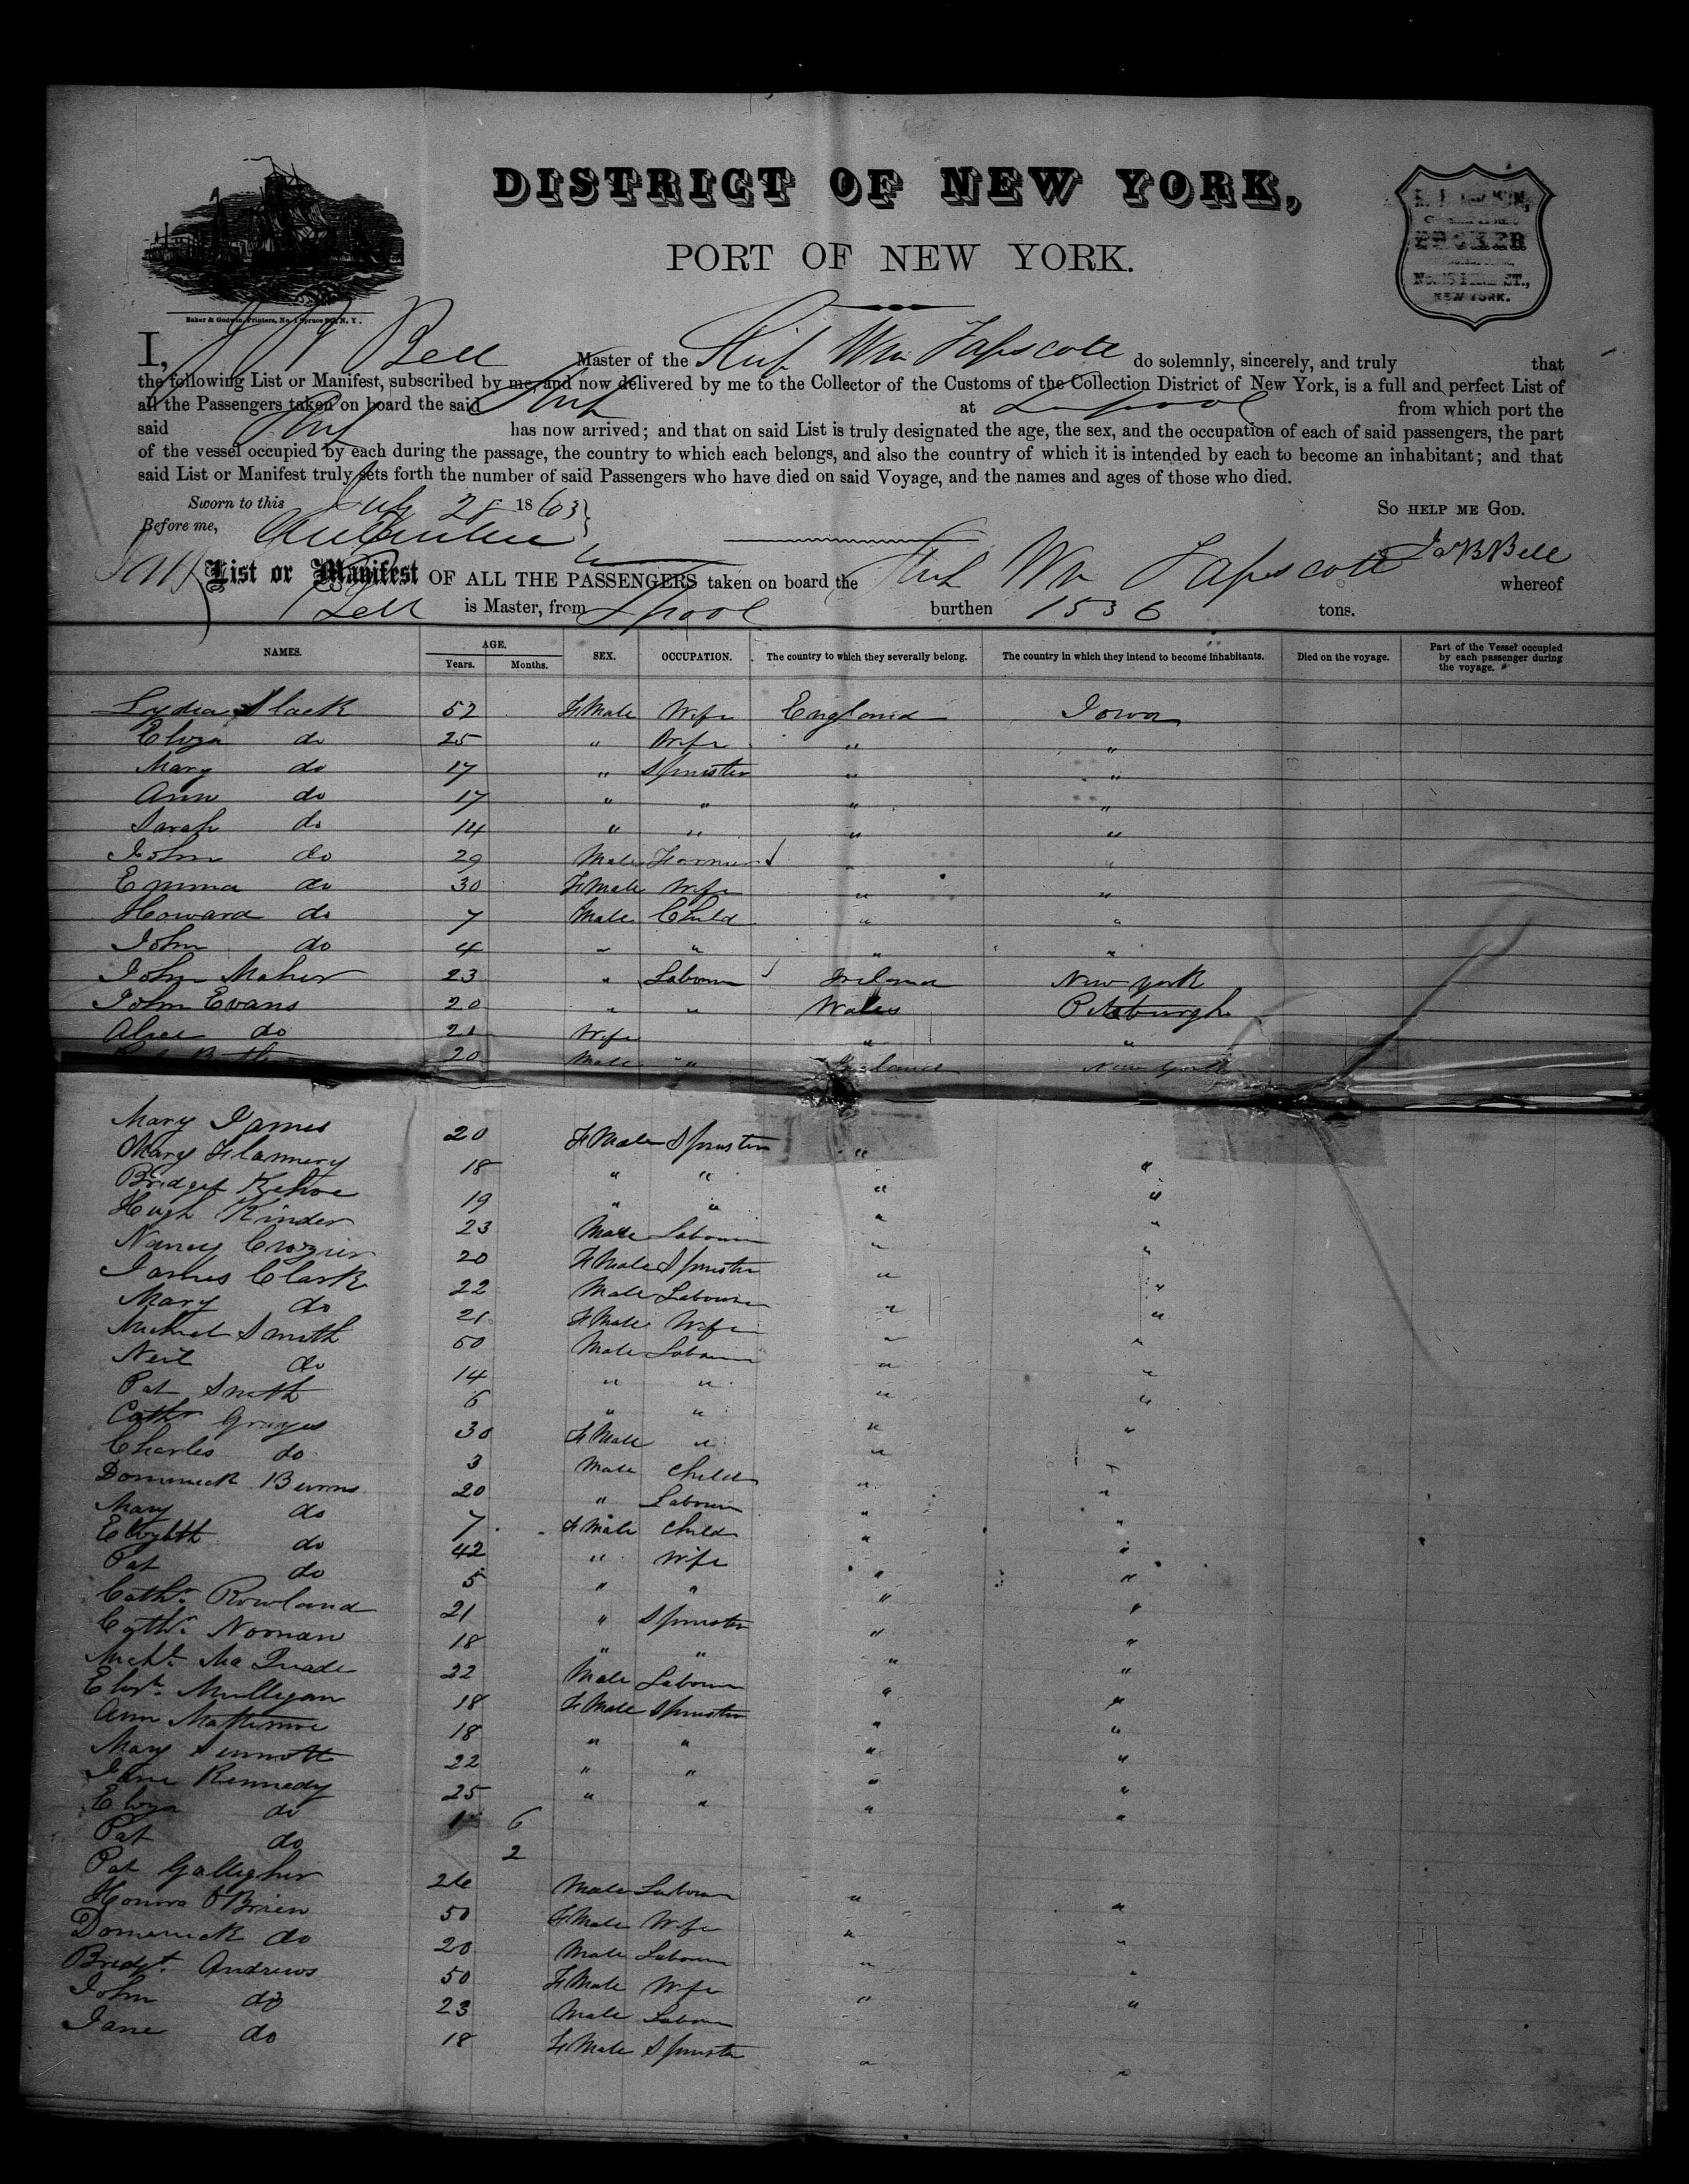 DISTRICT OF NEW YORK,
PORT OF NEW YORK.
BROKER
ST.,
NEW YORK.
Baker & Godwin, Printers, No. 1 Spruce St., N. Y.
I, Bell Master of the Ship Wm Tapscott do solemnly, sincerely, and truly that
the following List or Manifest, subscribed by me, and now delivered by me to the Collector of the Customs of the Collection District of New York, is a full and perfect List of
all the Passengers taken on board the said Ship at Lpool from which port the
said Ship has now arrived; and that on said List is truly designated the age, the sex, and the occupation of each of said passengers, the part
of the vessel occupied by each during the passage, the country to which each belongs, and also the country of which it is intended by each to become an inhabitant; and that
said List or Manifest truly sets forth the number of said Passengers who have died on said Voyage, and the names and ages of those who died.
Sworn to this July 1863
So help me God.
Before me,
Bell
List or Manifest OF ALL THE PASSENGERS taken on board the Ship Wm Tapscott whereof
Bell is Master, from Lpool burthen 1536 tons.
NAMES. AGE. Years. Months. SEX. OCCUPATION. The country to which they severally belong. The country in which they intend to become inhabitants. Died on the voyage. Part of the Vessel occupied by each passenger during the voyage.
Lydia Slack 52 FMale Wife England Iowa
Eliza do 25 " Wife " "
Mary do 17 " Spinster " "
Ann do 17 " " " "
Sarah do 14 " " " "
John do 29 Male Farmer " "
Emma do 30 FMale Wife " "
Howard do 7 Male Child " "
John do 4 " " " "
John Maher 23 " Labourer Ireland New York
John Evans 20 " " Wales Pittsburgh
Alice do 21 Wife " "
20 Male " Ireland New York
Mary James 20 FMale Spinster " "
Mary Flannery 18 " " " "
Bridget Kehoe 19 " " " "
Hugh Kinder 23 Male Labourer " "
Nancy Crozier 20 FMale Spinster " "
James Clark 22 Male Labourer " "
Mary do 21 FMale Wife " "
Michael Smith 50 Male Labourer " "
Neil do 14 " " " "
Pat Smith 6 " " " "
Cathr 30 FMale " " "
Charles do 3 Male Child " "
Dominick Burns 20 " Labourer " "
Mary do 7 FMale Child " "
do 42 " Wife " "
Pat do 5 " " " "
Cathr Rowland 21 " Spinster " "
Cathr Noonan 18 " " " "
Michl McQuade 22 Male Labourer " "
Elizth Mulligan 18 FMale Spinster " "
Ann Mattimoe 18 " " " "
Mary Sinnott 22 " " " "
Jane Kennedy 25 " " " "
Eliza do 1 6
Pat do 2
Pat Gallagher 26 Male Labourer " "
Honora O'Brien 50 FMale Wife " "
Dominick do 20 Male Labourer " "
Bridgt Andrews 50 FMale Wife " "
John do 23 Male Labourer
Jane do 18 FMale Spinster " "